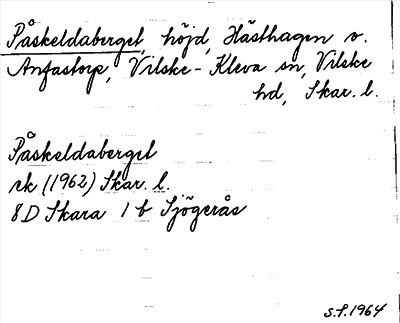 Påskeldaberget, höjd, Hästhagen v.
Anfastorp, Vilske-Kleva sn, Vilske
hd, Skar. l.
Påskeldaberget
ek (1962) Skar. l.
8D Skara 1 b Sjögerås
S.F. 1964